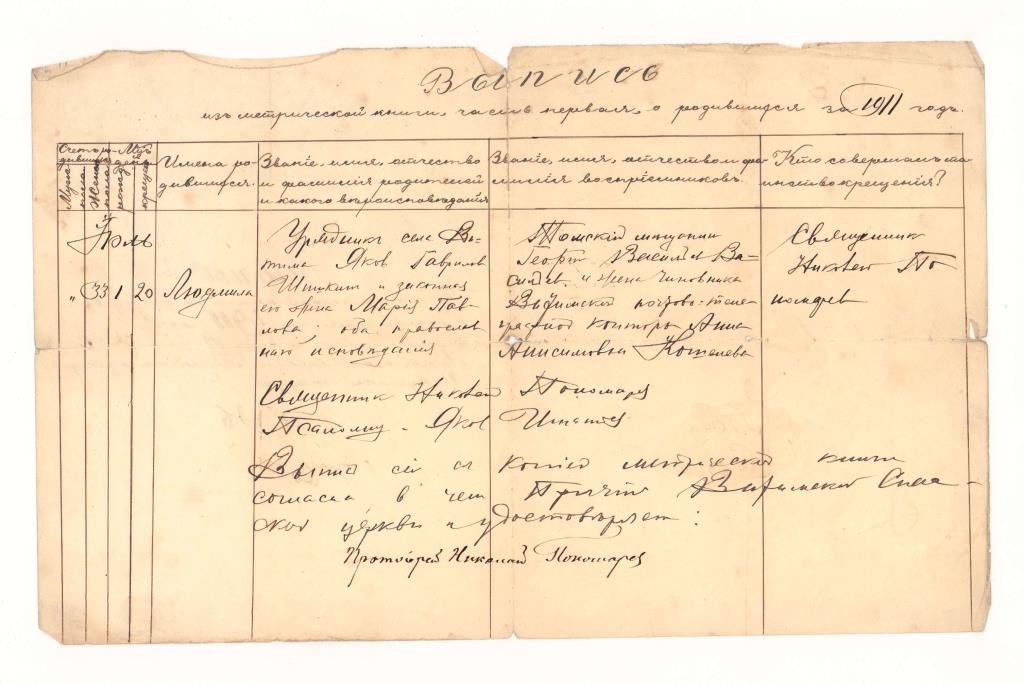 Выпись
изъ метрической книги, часть первая, о родившихся за 1911 годъ.
Счетъ родившихся
Муж. пола
Женс. пола
рожд.
крещен.
Имена родившихся.
Званіе, имя, отчество
и фамилія родителей
и какого вѣроисповѣданія
Званіе, имя, отчество и фа-
милія воспріемниковъ.
Кто совершалъ та-
инство крещенія?
Іюль
„ 33 1 20
Людмила
Урядникъ села Ви-
тима Яков Гаврилов
и законная
его жена Марія Пав-
лова; оба православ-
наго исповѣданія
Томскій мещанин
Георгій Василіев Ва-
сильев. и жена чиновника
Витимской почтово-теле-
графной конторы Анна
Анисимовна Кошелева
Священник
Николай По
номарев
Священник Николай Пономарев
Псаломщ. Яков
Выпись сія с копіей метрической книги
согласна в чем Причт Витимской Спас-
ской церкви и удостовѣряет:
Протоіерей Николай Пономарев